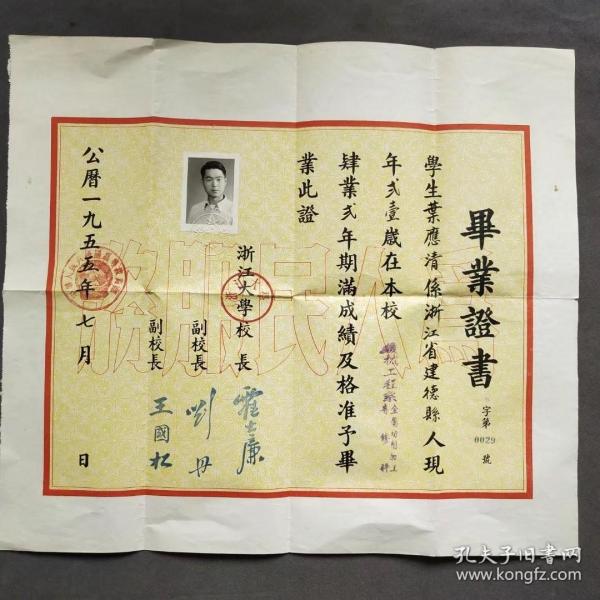 畢業證書
字第
0029
號
學生葉應清係浙江省建德縣人現
年弍壹歲在本校
機械工程系
金屬切削加工
專修科
肄業弍年期滿成績及格准予畢
業此證
浙江大學校長
霍士廉
副校長
劉丹
副校長
王國松
公曆一九五五年七月
日
為人民服務
孔夫子旧书网
www.kongfz.com